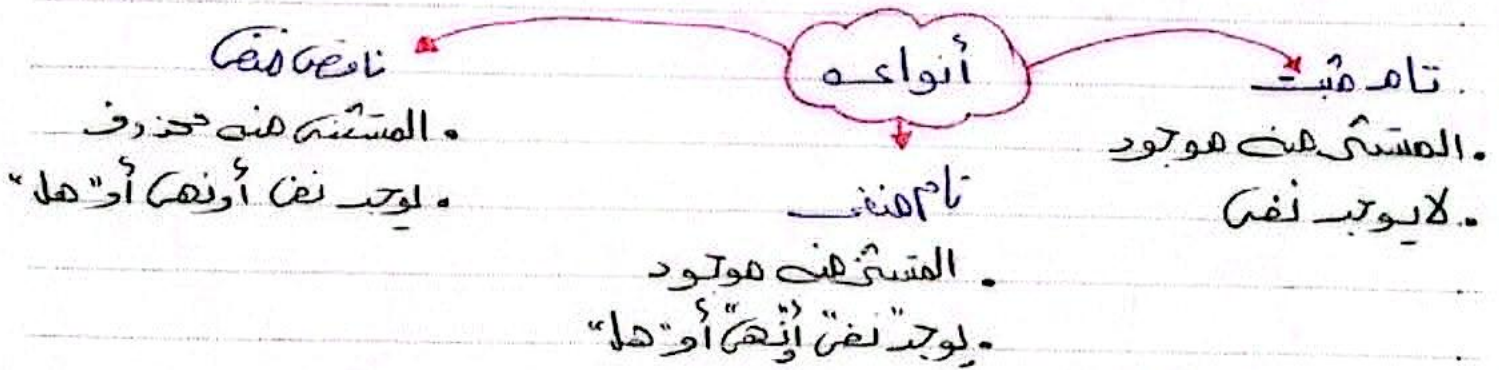 أنواعه
تام مثبت
• المستثنى منه موجود
• لا يوجد نفى
تام منفى
• المستثنى منه موجود
• يوجد "نفى" أو "نهى" أو "هل"
ناقص منفى
• المستثنى منه محذوف
• يوجد نفى أو نهى أو "هل"